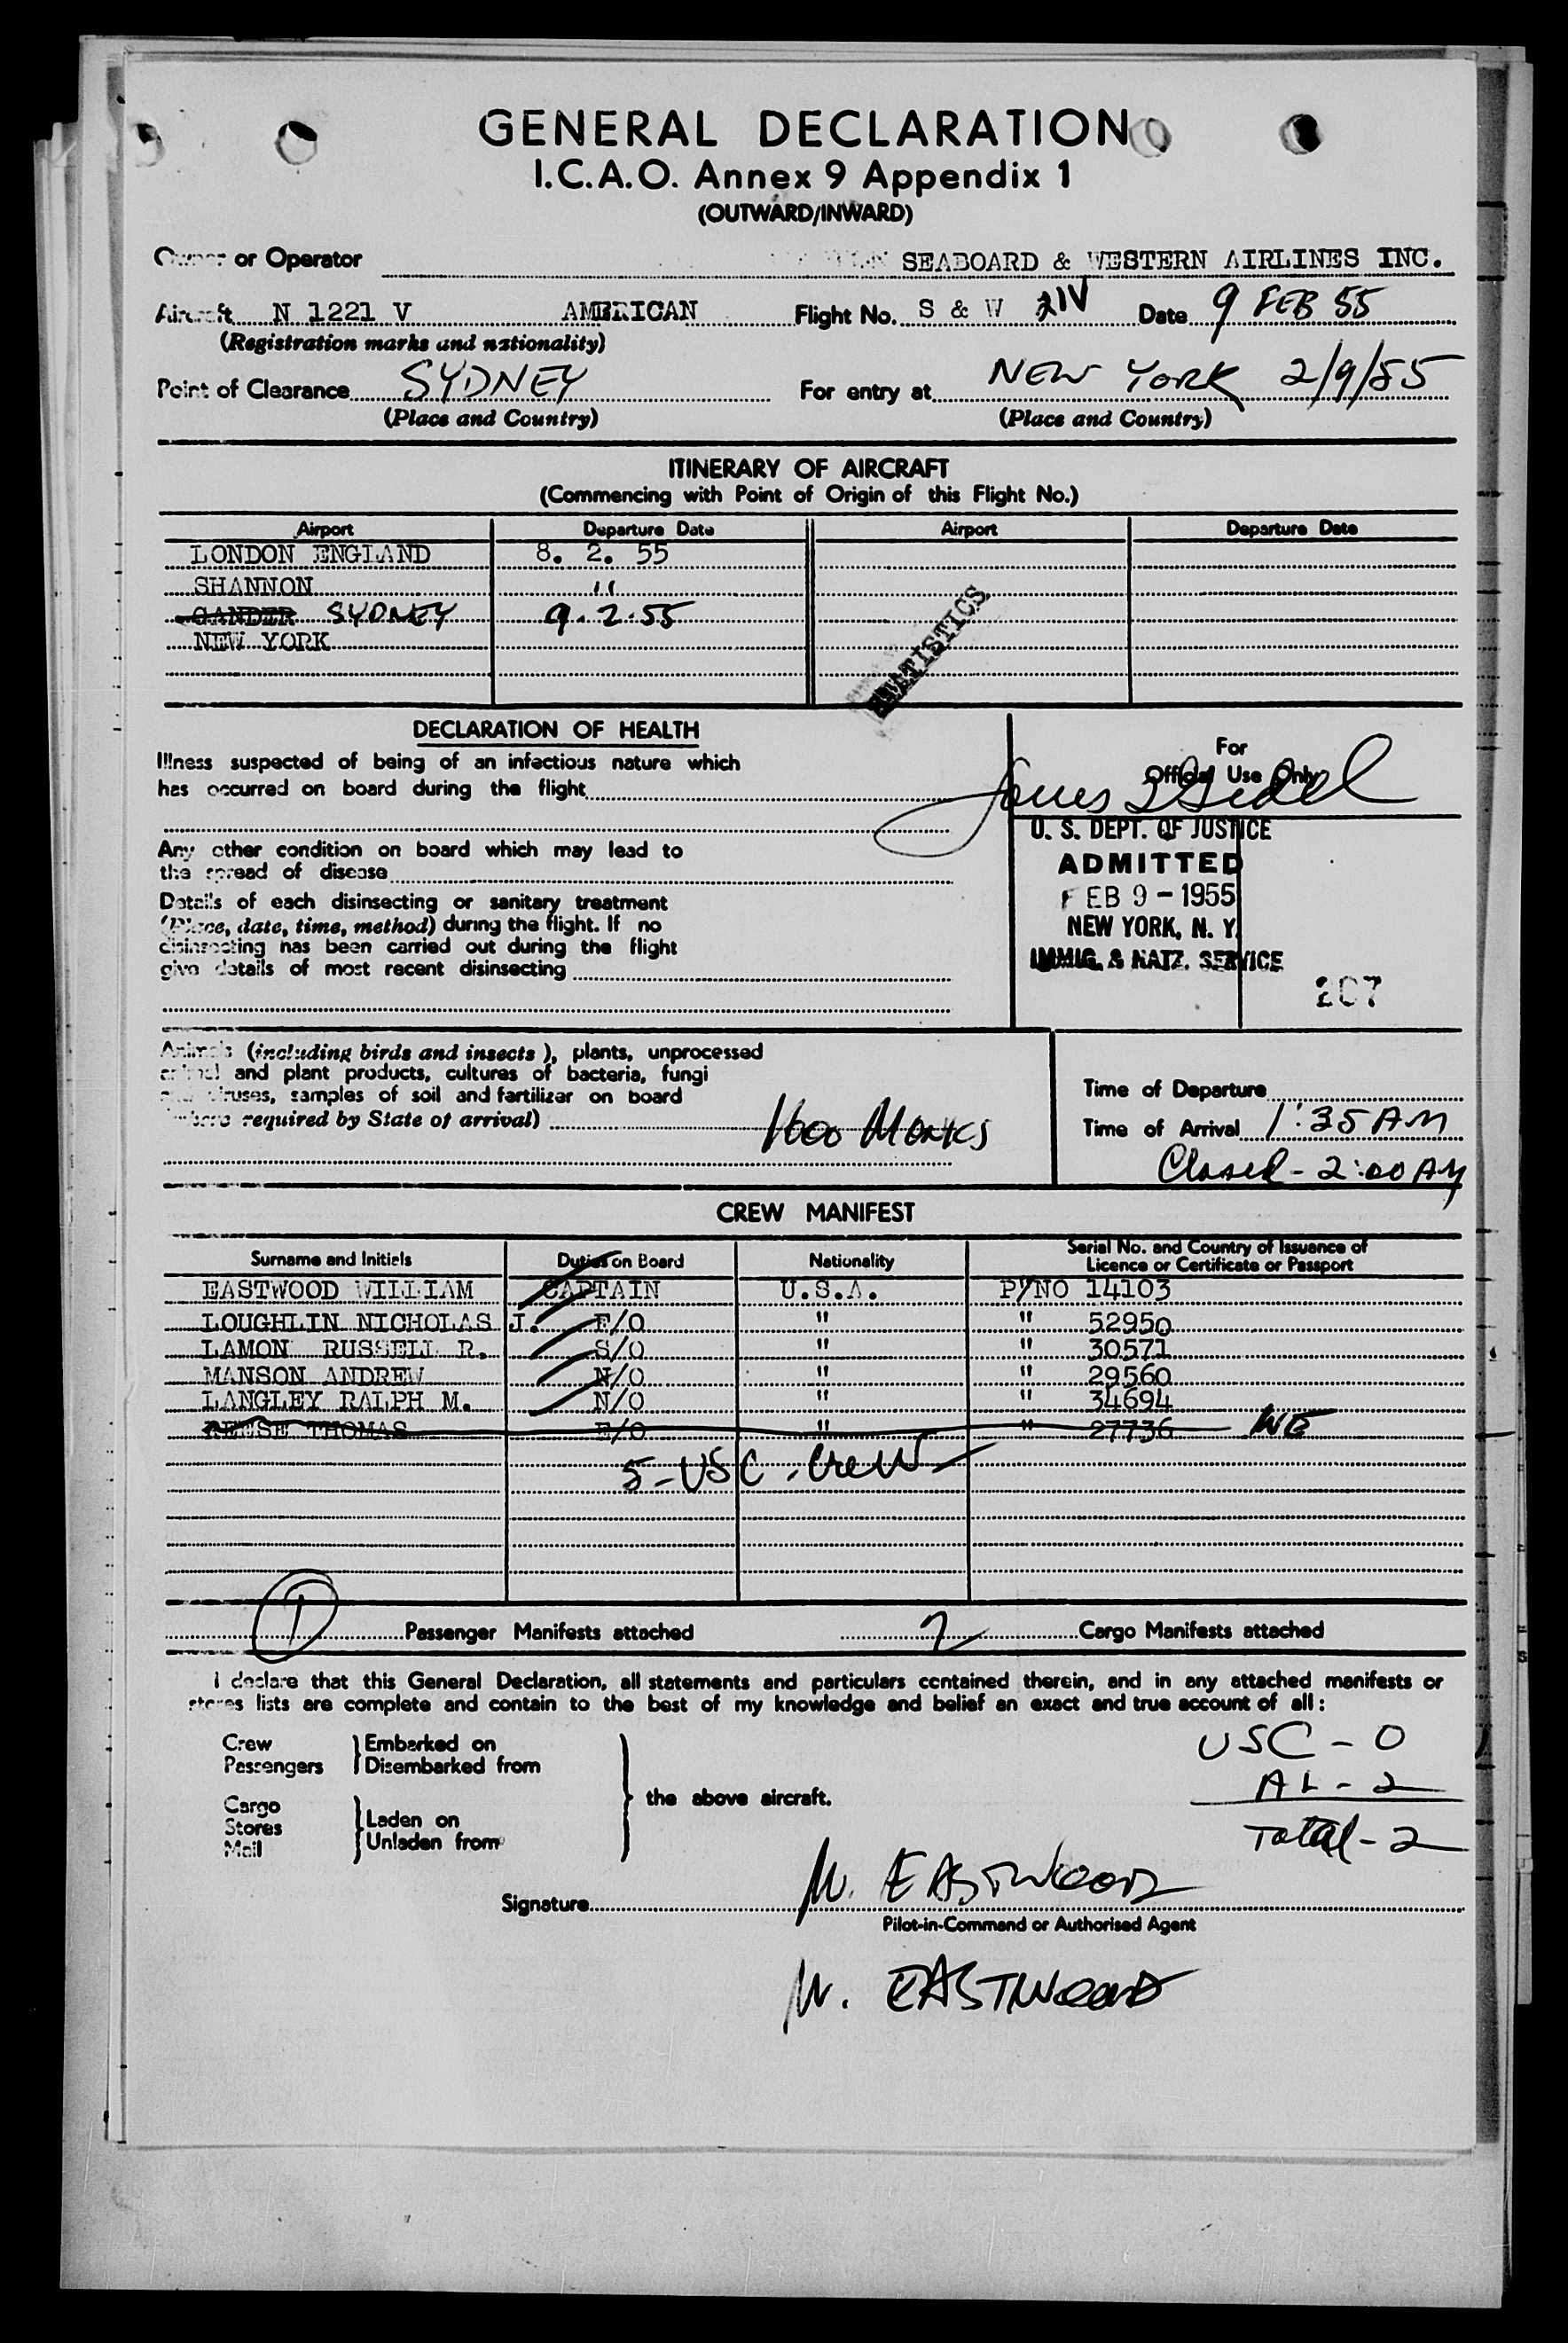 GENERAL DECLARATION
I.C.A.O. Annex 9 Appendix 1
(OUTWARD/INWARD)
Owner or Operator SEABOARD & WESTERN AIRLINES INC.
Aircraft N 1221 V AMERICAN Flight No. S & W Date 9 FEB 55
(Registration marks and nationality)
Point of Clearance SYDNEY For entry at NEW YORK 2/9/55
(Place and Country) (Place and Country)
ITINERARY OF AIRCRAFT
(Commencing with Point of Origin of this Flight No.)
Airport Departure Date Airport Departure Date
LONDON ENGLAND 8. 2. 55
SHANNON "
GANDER SYDNEY 9.2.55
NEW YORK
STATISTICS
DECLARATION OF HEALTH
Illness suspected of being of an infectious nature which
has occurred on board during the flight
Any other condition on board which may lead to
the spread of disease
Details of each disinsecting or sanitary treatment
(Place, date, time, method) during the flight. If no
disinsecting has been carried out during the flight
give details of most recent disinsecting
For
Official Use Only
U. S. DEPT. OF JUSTICE
ADMITTED
FEB 9 - 1955
NEW YORK, N. Y.
IMMIG. & NATZ. SERVICE
207
Animals (including birds and insects), plants, unprocessed
animal and plant products, cultures of bacteria, fungi
and viruses, samples of soil and fertilizer on board
(where required by State of arrival) 1600 Monks
Time of Departure
Time of Arrival 1:35 AM
Closed - 2:00 AM
CREW MANIFEST
Surname and Initials Duties on Board Nationality Serial No. and Country of Issuance of
Licence or Certificate or Passport
EASTWOOD WILLIAM CAPTAIN U.S.A. P/NO 14103
LOUGHLIN NICHOLAS J. F/O " " 52950
LAMON RUSSELL R. S/O " " 30571
MANSON ANDREW N/O " " 29560
LANGLEY RALPH M. N/O " " 34694
REESE THOMAS E/O " " 27736 WE
5-USC. Crew
1 Passenger Manifests attached 2 Cargo Manifests attached
I declare that this General Declaration, all statements and particulars contained therein, and in any attached manifests or
stores lists are complete and contain to the best of my knowledge and belief an exact and true account of all:
Crew Embarked on
Passengers Disembarked from
the above aircraft.
Cargo
Stores Laden on
Mail Unladen from
USC - 0
AL - 2
Total - 2
Signature W. EASTWOOD
Pilot-in-Command or Authorised Agent
W. EASTWOOD